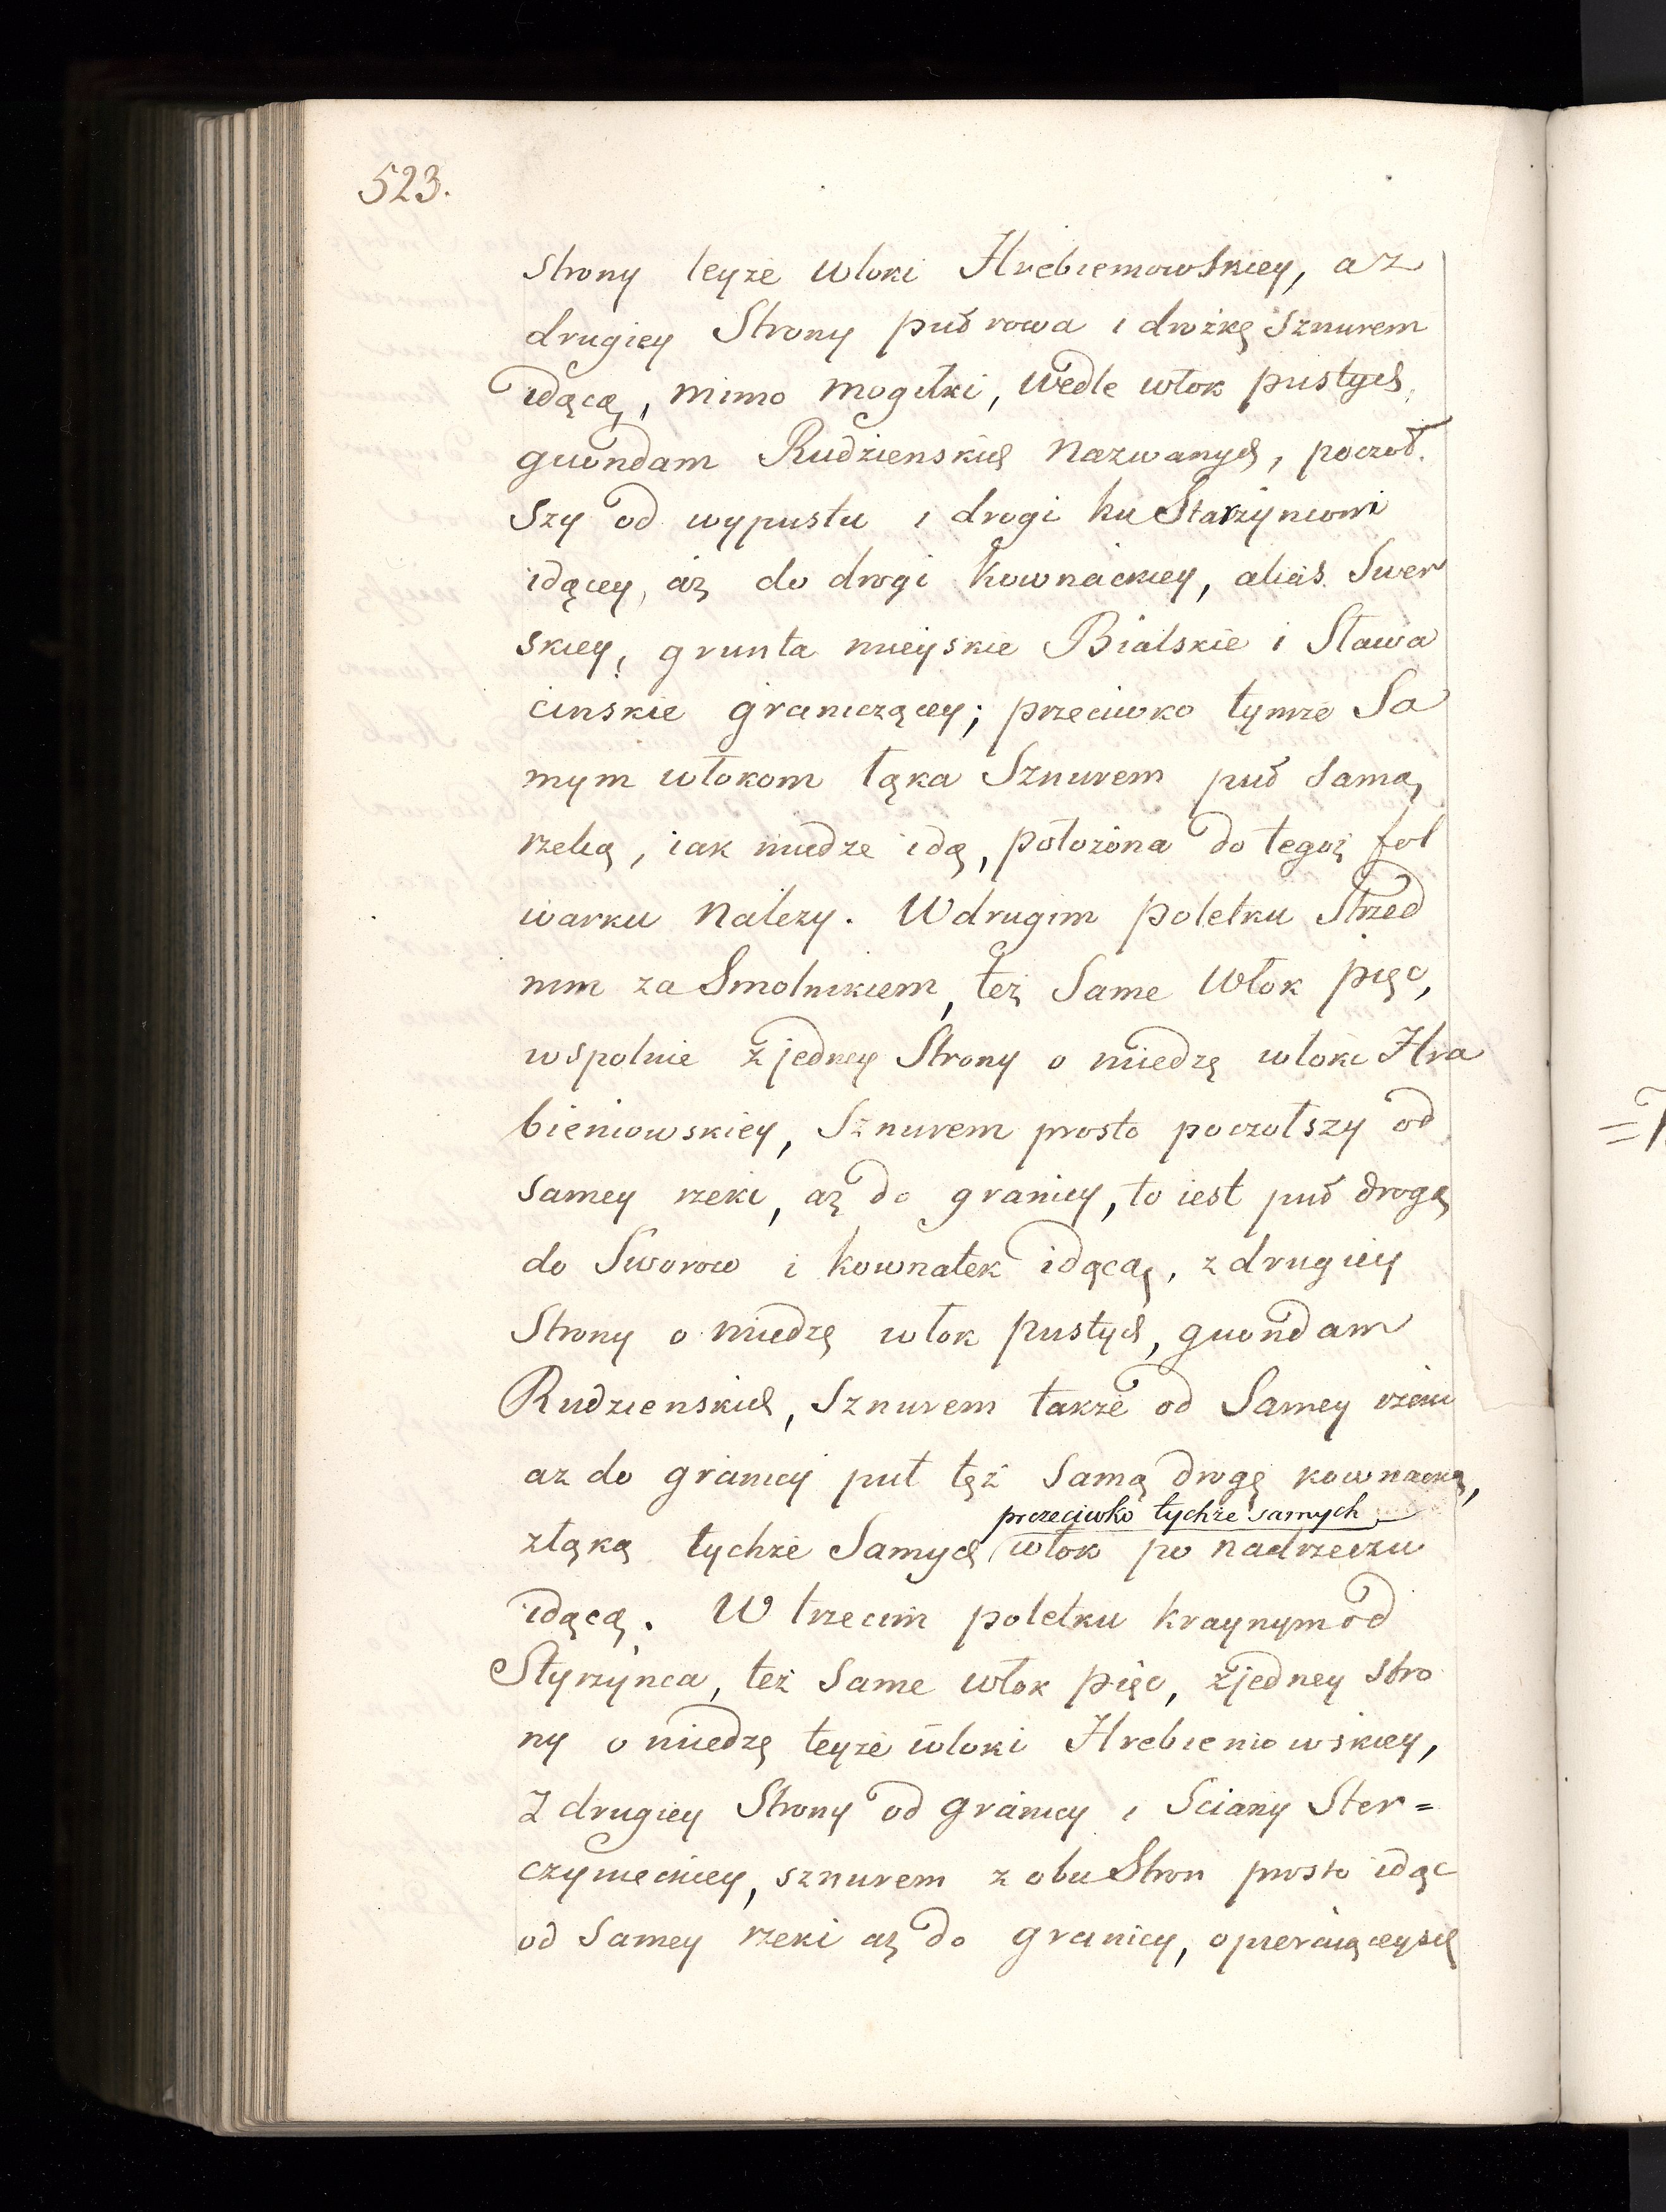 523.
strony teyże włoki Hrebieniowskiey, a z
drugiey Strony puł rowa i drożkę Sznurem
idącą, mimo mogiłki, wedle włok pustych
quondam Rudzienskich Nazwanych, poczoł
szy od wypustu i drogi ku Starzyncowi
idącey, aż do drogi Kownackiey, alias Swor
skiey, grunta mieyskie Bialskie i Sława
cinskie graniczącey; przeciwko tymże Sa
mym włokom łąka Sznurem puł samą
rzeką, iak miedze idą, położona do tegoż fol
warku Należy. W drugim poletku Strzed
nim za Smolnikiem, też Same Włok pięc,
wspolnie z jedney Strony o miedzę włoki Hra
bieniowskiey, Sznurem prosto poczołszy od
samey rzeki, aż do granicy, to iest puł drogą
do Sworow i kownatek idącą, z drugiey
Strony o miedzę włok pustych, quondam
Rudzienskich, Sznurem także od Samey rzeki
az do granicy puł tęż Samą drogę kownacką,
przeciwko tychże samych
złąką tychże Samych włok po nadrzeczu
idącą. W trzecim poletku kraynym od
Styrzynca, też Same włok pięc, z jedney stro
ny o miedzę teyże włoki Hrebieniowskiey,
Z drugiey Strony od granicy i Sciany Ster=
czynieckiey, sznurem z obu Stron prosto idąc
od Samey rzeki aż do granicy, opieraiącey się
=